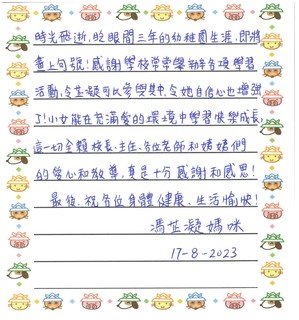 時光飛逝,眨眼間三年的幼稚園生涯,即將
畫上句號!感謝學校常常舉辦各項學習
活動,令芷凝可以參與其中,令她自信心也增強
了!小女能在充滿愛的環境中學習快樂成長,
這一切全賴校長、主任、各位老師和姨姨們
的愛心和教導,真是十分感謝和感恩!
最後,祝各位身體健康、生活愉快!
馮芷凝媽咪
17-8-2023